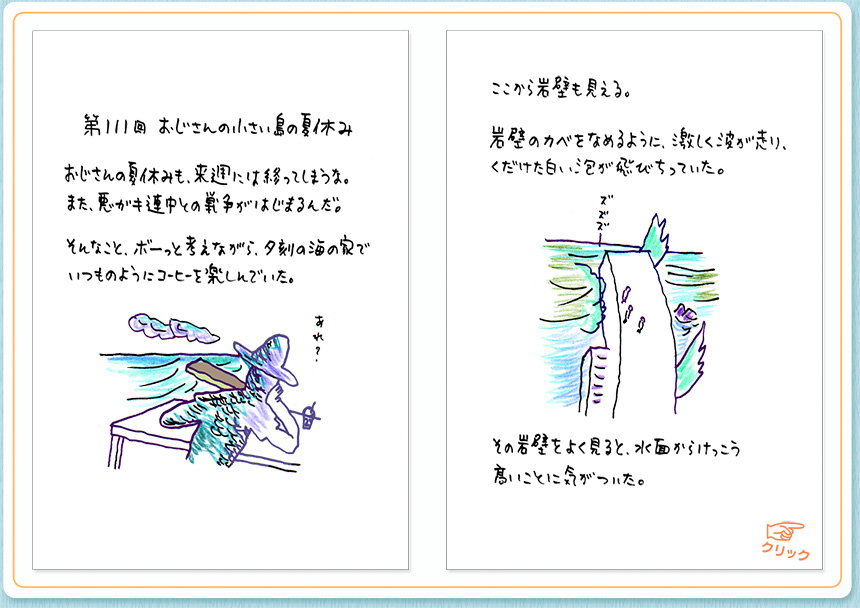 第111回 おじさんの小さい島の夏休み
おじさんの夏休みも、来週には終ってしまうな。
また、悪ガキ連中との戦争がはじまるんだ。
そんなこと、ボーっと考えながら、夕刻の海の家で
いつものようにコーヒーを楽しんでいた。
あれ?
ここから岩壁も見える。
岩壁のカベをなめるように、激しく波が走り、
くだけた白い泡が飛びちっていた。
ズズズ
その岩壁をよく見ると、水面からけっこう
高いことに気がついた。
クリック